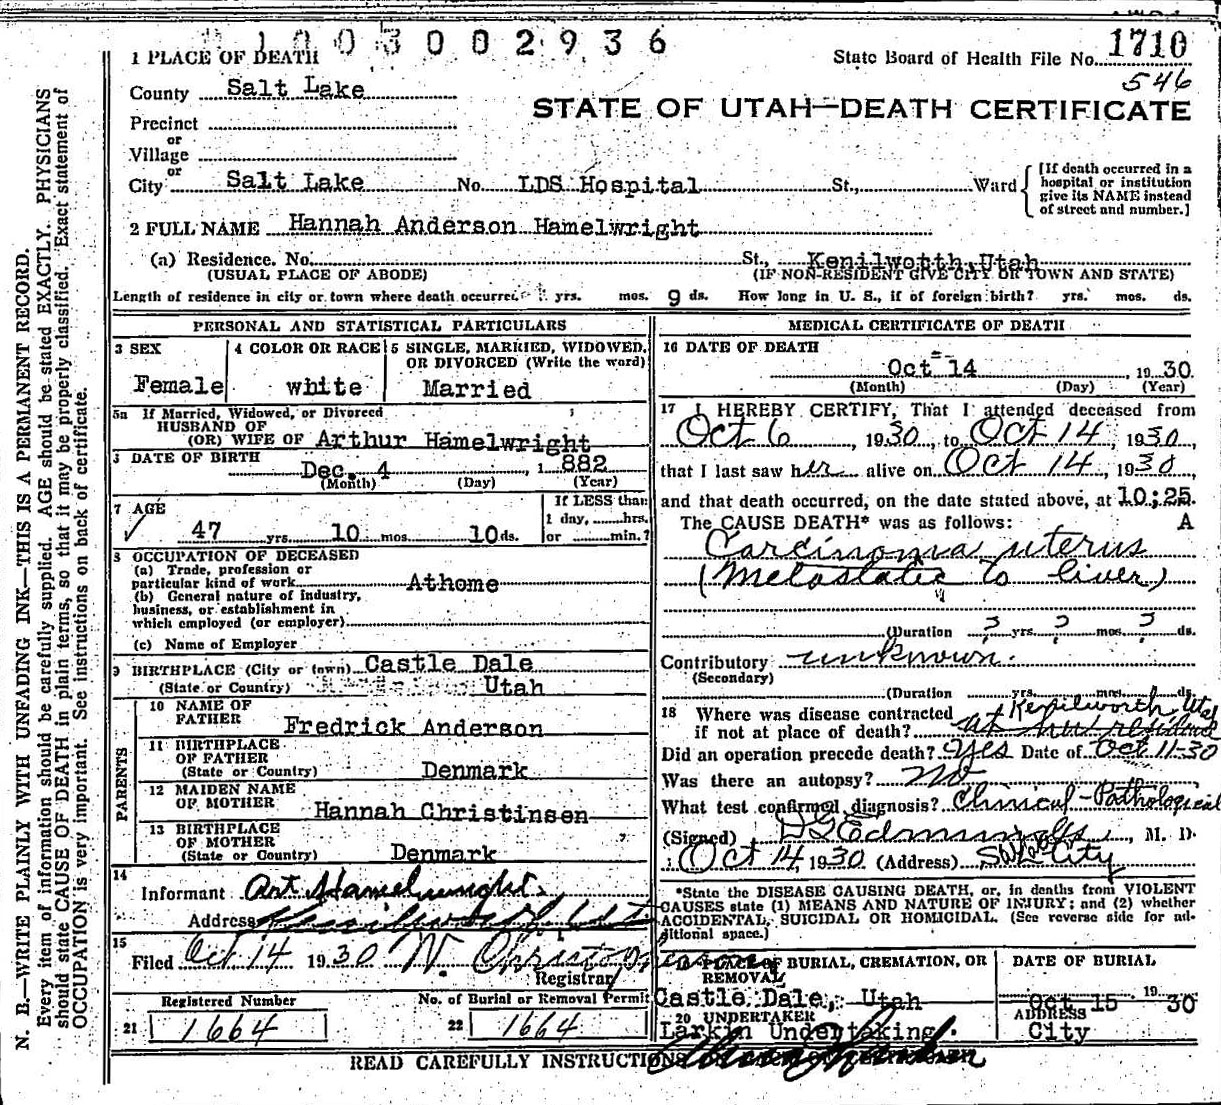 1003002936
1 PLACE OF DEATH
State Board of Health File No. 1710
546
County Salt Lake
STATE OF UTAH—DEATH CERTIFICATE
Precinct
or
Village
or
City Salt Lake No. LDS Hospital St., Ward [If death occurred in a hospital or institution give its NAME instead of street and number.]
2 FULL NAME Hannah Anderson Hamelwright
(a) Residence. No. St., Kenilworth, Utah
(USUAL PLACE OF ABODE) (IF NON-RESIDENT GIVE CITY OR TOWN AND STATE)
Length of residence in city or town where death occurred yrs. mos. 9 ds. How long in U. S., if of foreign birth? yrs. mos. ds.
PERSONAL AND STATISTICAL PARTICULARS
3 SEX
Female
4 COLOR OR RACE
white
5 SINGLE, MARRIED, WIDOWED, OR DIVORCED (Write the word)
Married
5a If Married, Widowed, or Divorced
HUSBAND OF
(OR) WIFE OF Arthur Hamelwright
DATE OF BIRTH
Dec. 4, 1882
(Month) (Day) (Year)
7 AGE
47 yrs. 10 mos. 10 ds.
If LESS than
1 day, hrs.
or min.?
8 OCCUPATION OF DECEASED
(a) Trade, profession or
particular kind of work Athome
(b) General nature of industry,
business, or establishment in
which employed (or employer)
(c) Name of Employer
9 BIRTHPLACE (City or town) Castle Dale
(State or Country) Utah
PARENTS
10 NAME OF
FATHER Fredrick Anderson
11 BIRTHPLACE
OF FATHER
(State or Country) Denmark
12 MAIDEN NAME
OF MOTHER Hannah Christinsen
13 BIRTHPLACE
OF MOTHER
(State or Country) Denmark
14
Informant Art Hamelwright.
Address Kenilworth Utah
15
Filed Oct 14 1930 W. Christo
Registrar
Registered Number
21 1664
No. of Burial or Removal Permit
22 1664
MEDICAL CERTIFICATE OF DEATH
16 DATE OF DEATH
Oct 14, 1930
(Month) (Day) (Year)
17 I HEREBY CERTIFY, That I attended deceased from
Oct 6, 1930, to Oct 14, 1930,
that I last saw her alive on Oct 14, 1930,
and that death occurred, on the date stated above, at 10:25.
The CAUSE DEATH* was as follows: A
Carcinoma uterus
(Metastatic to liver)
(Duration ? yrs. ? mos. ? ds.
Contributory unknown.
(Secondary)
(Duration yrs. mos. ds.
18 Where was disease contracted Kenilworth, Utah
if not at place of death? at her residence
Did an operation precede death? Yes Date of Oct 11-30
Was there an autopsy? No
What test confirmed diagnosis? Clinical-Pathological
(Signed) DG Edmunds, M. D.
Oct 14, 1930 (Address) City
*State the DISEASE CAUSING DEATH, or, in deaths from VIOLENT
CAUSES state (1) MEANS AND NATURE OF INJURY; and (2) whether
ACCIDENTAL, SUICIDAL OR HOMICIDAL. (See reverse side for ad-
ditional space.)
19 PLACE OF BURIAL, CREMATION, OR
REMOVAL
Castle Dale, Utah
DATE OF BURIAL
Oct 15 1930
20 UNDERTAKER
Larkin Undertaking.
ADDRESS
City
READ CAREFULLY INSTRUCTIONS
N. B.—WRITE PLAINLY WITH UNFADING INK—THIS IS A PERMANENT RECORD.
Every item of information should be carefully supplied. AGE should be stated EXACTLY. PHYSICIANS
should state CAUSE OF DEATH in plain terms, so that it may be properly classified. Exact statement of
OCCUPATION is very important. See instructions on back of certificate.